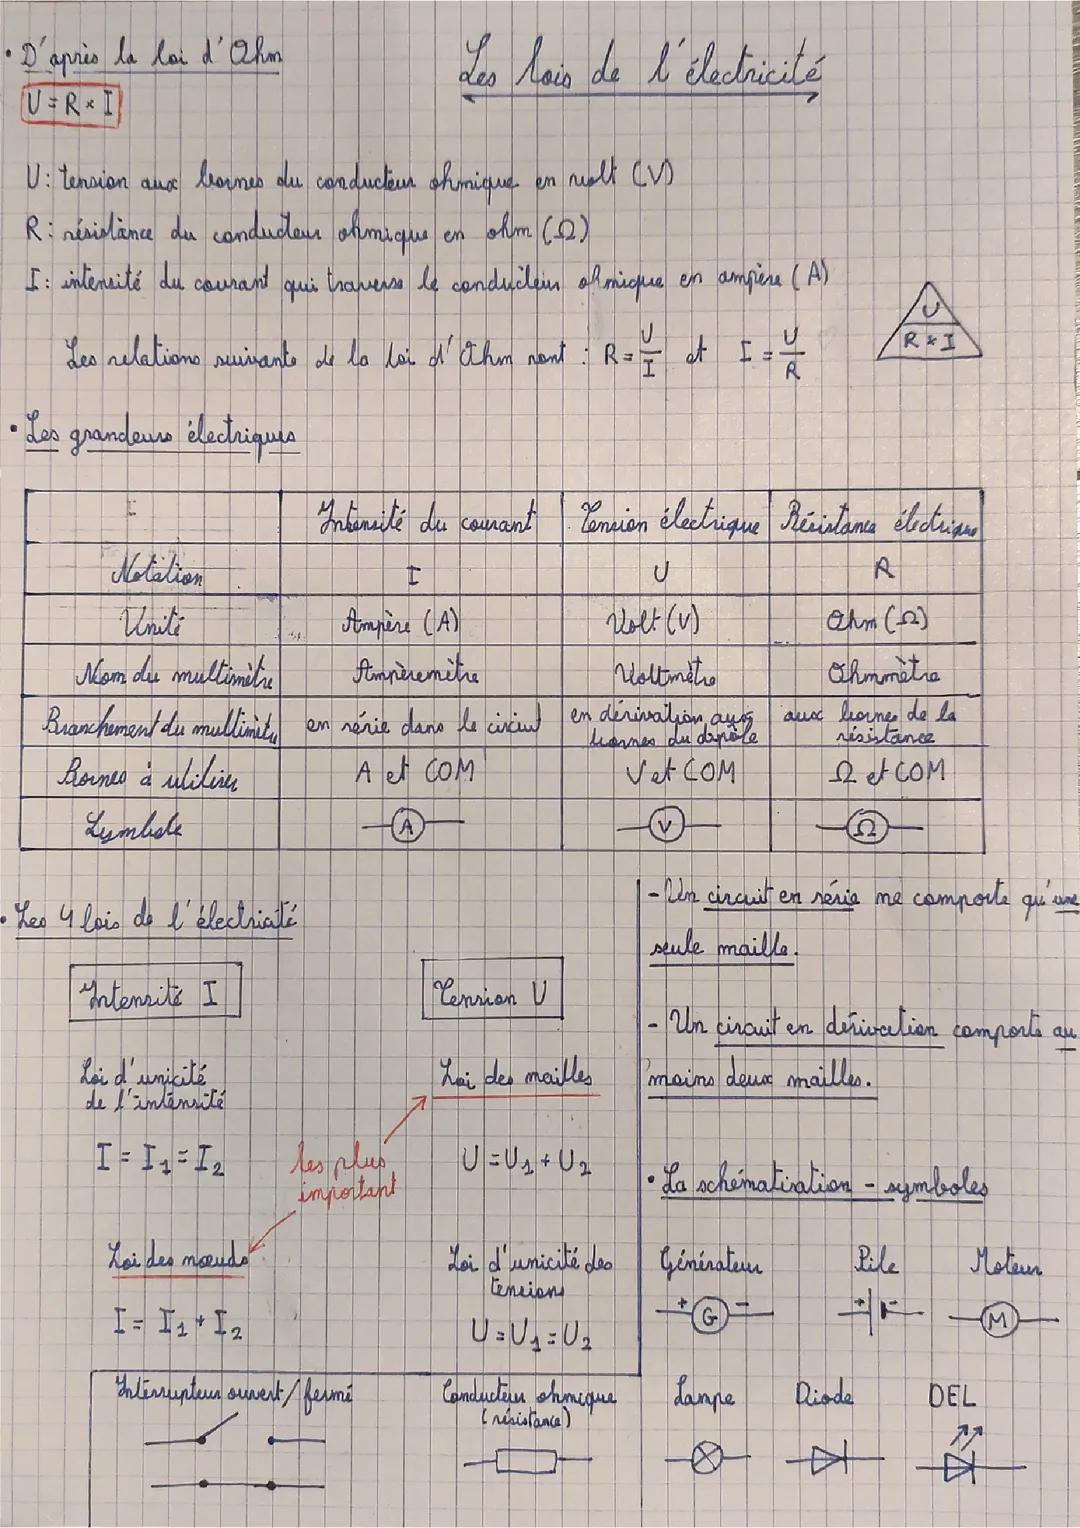 • D'après la loi d'Ohm
Les lois de l'électricité
U = R × I
U : tension aux bornes du conducteur ohmique en volt (V)
R : résistance du conducteur ohmique en ohm (Ω)
I : intensité du courant qui traverse le conducteur ohmique en ampère (A)
Les relations suivante de la loi d'Ohm sont : R = U/I et I = U/R
U
R × I
• Les grandeurs électriques
Intensité du courant Tension électrique Résistance électrique
Notation I U R
Unité Ampère (A) Volt (V) Ohm (Ω)
Nom du multimètre Ampèremètre Voltmètre Ohmmètre
Branchement du multimètre en série dans le circuit en dérivation aux bornes du dipôle aux bornes de la résistance
Bornes à utiliser A et COM V et COM Ω et COM
Symbole A V Ω
• Les 4 lois de l'électricité
Intensité I
Tension U
Loi d'unicité
de l'intensité
I = I1 = I2
Loi des mailles
U = U1 + U2
les plus
important
Loi des nœuds
I = I1 + I2
Loi d'unicité des
tensions
U = U1 = U2
- Un circuit en série ne comporte qu'une
seule maille.
- Un circuit en dérivation comporte au
moins deux mailles.
• La schématisation - symboles
Générateur Pile Moteur
+ G - + - M
Interrupteur ouvert / fermé
Conducteur ohmique
(résistance)
Lampe Diode DEL